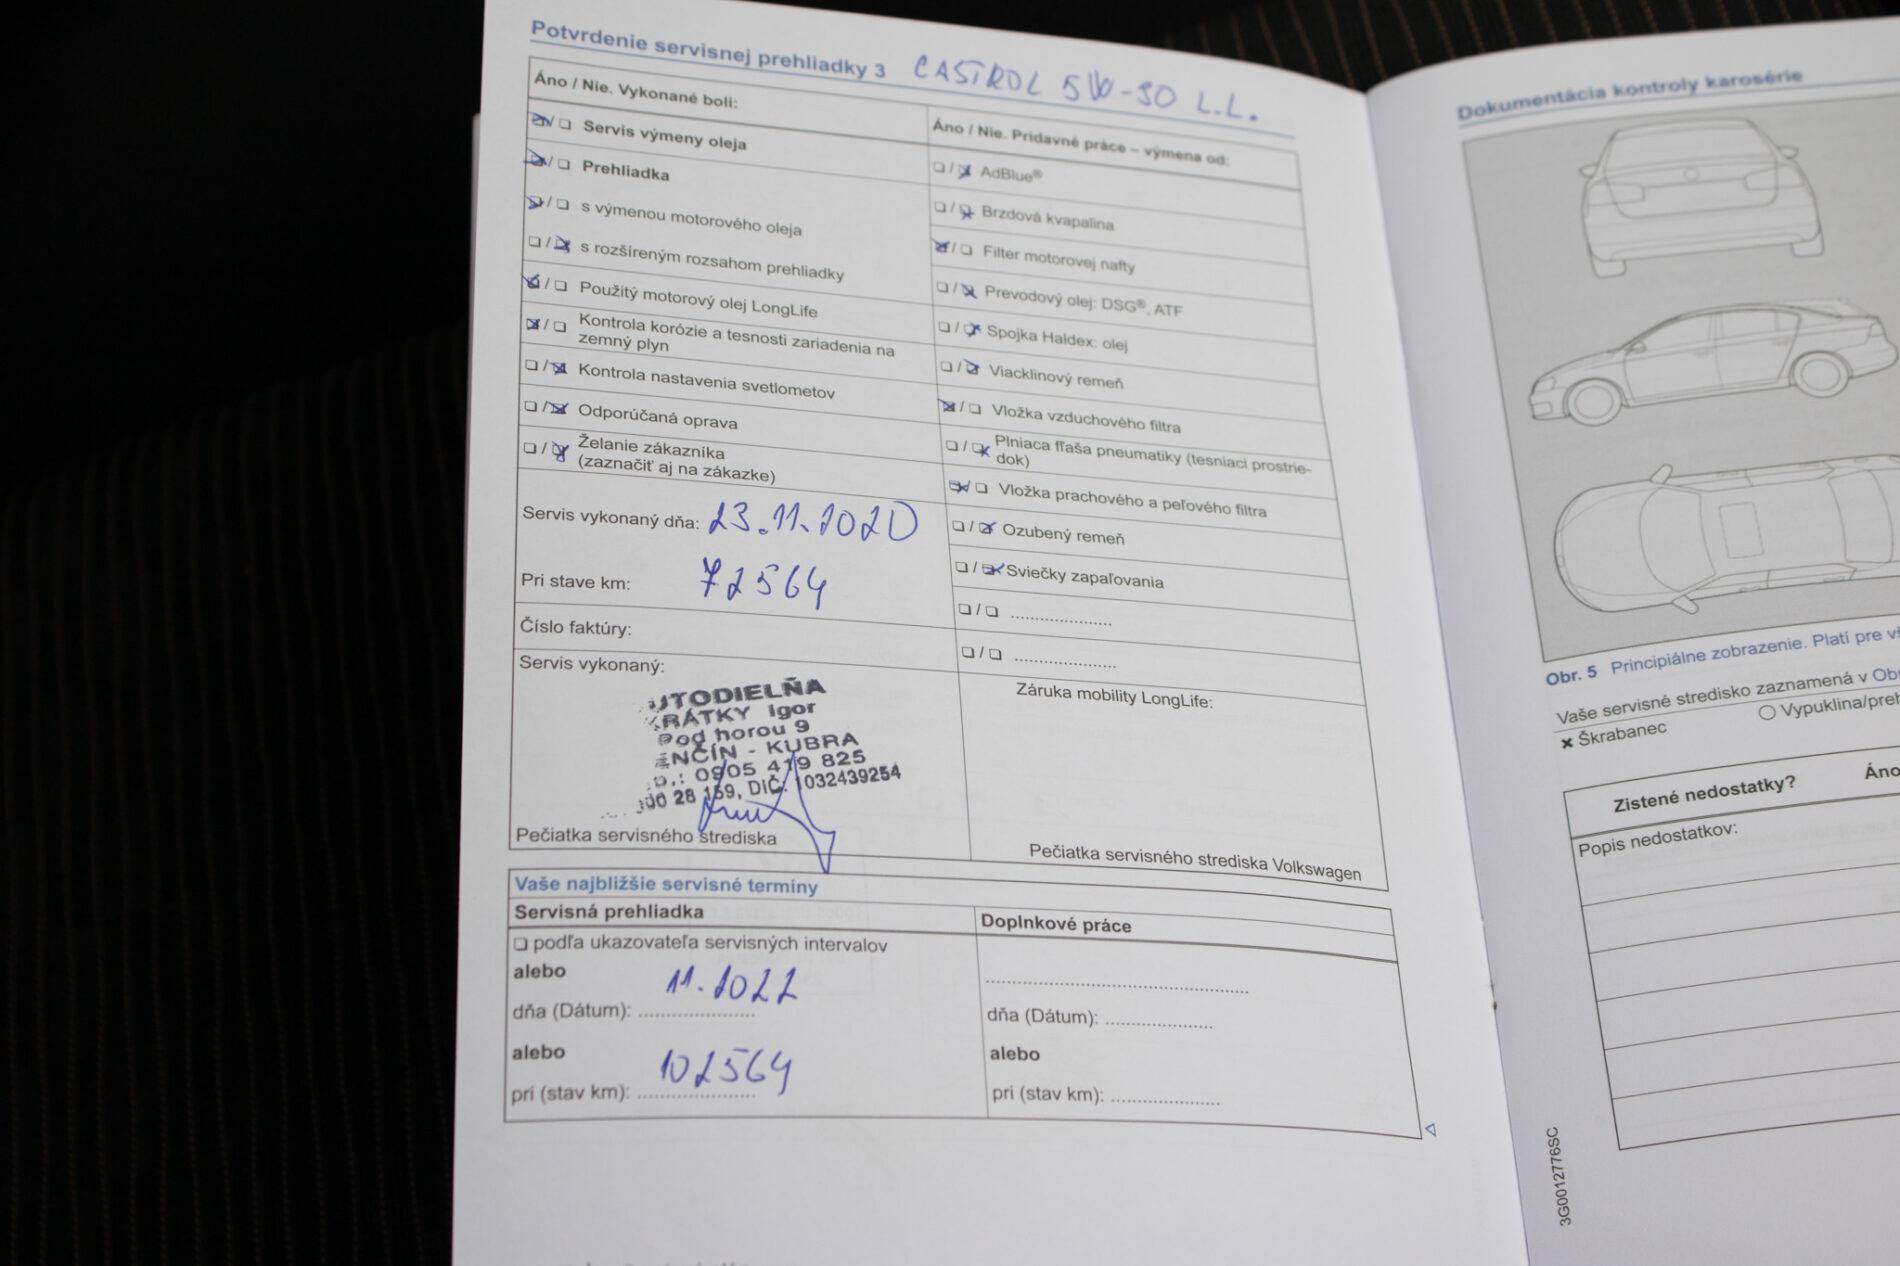 Potvrdenie servisnej prehliadky 3 CASTROL 5W-30 L.L.
Áno / Nie. Vykonané boli:
Servis výmeny oleja
Prehliadka
s výmenou motorového oleja
s rozšíreným rozsahom prehliadky
Použitý motorový olej LongLife
Kontrola korózie a tesnosti zariadenia na
zemný plyn
Kontrola nastavenia svetlometov
Odporúčaná oprava
Želanie zákazníka
(zaznačiť aj na zákazke)
Servis vykonaný dňa: 23.11.2020
Pri stave km: 72564
Číslo faktúry:
Servis vykonaný:
UTODIELŇA
KRÁTKY Igor
Pod horou 9
ENČÍN - KUBRA
0905 419 825
28 159, DIČ: 1032439254
Pečiatka servisného strediska
Áno / Nie. Prídavné práce – výmena od:
AdBlue®
Brzdová kvapalina
Filter motorovej nafty
Prevodový olej: DSG®, ATF
Spojka Haldex: olej
Viacklinový remeň
Vložka vzduchového filtra
Plniaca fľaša pneumatiky (tesniaci prostrie-
dok)
Vložka prachového a peľového filtra
Ozubený remeň
Sviečky zapaľovania
Záruka mobility LongLife:
Pečiatka servisného strediska Volkswagen
Vaše najbližšie servisné termíny
Servisná prehliadka
podľa ukazovateľa servisných intervalov
alebo
dňa (Dátum): 11.2022
alebo
pri (stav km): 102564
Doplnkové práce
dňa (Dátum):
alebo
pri (stav km):
Dokumentácia kontroly karosérie
Obr. 5 Principiálne zobrazenie. Platí pre
Vaše servisné stredisko zaznamená v Obr
Škrabanec
Vypuklina/preh
Zistené nedostatky? Áno
Popis nedostatkov:
3G0012776SC